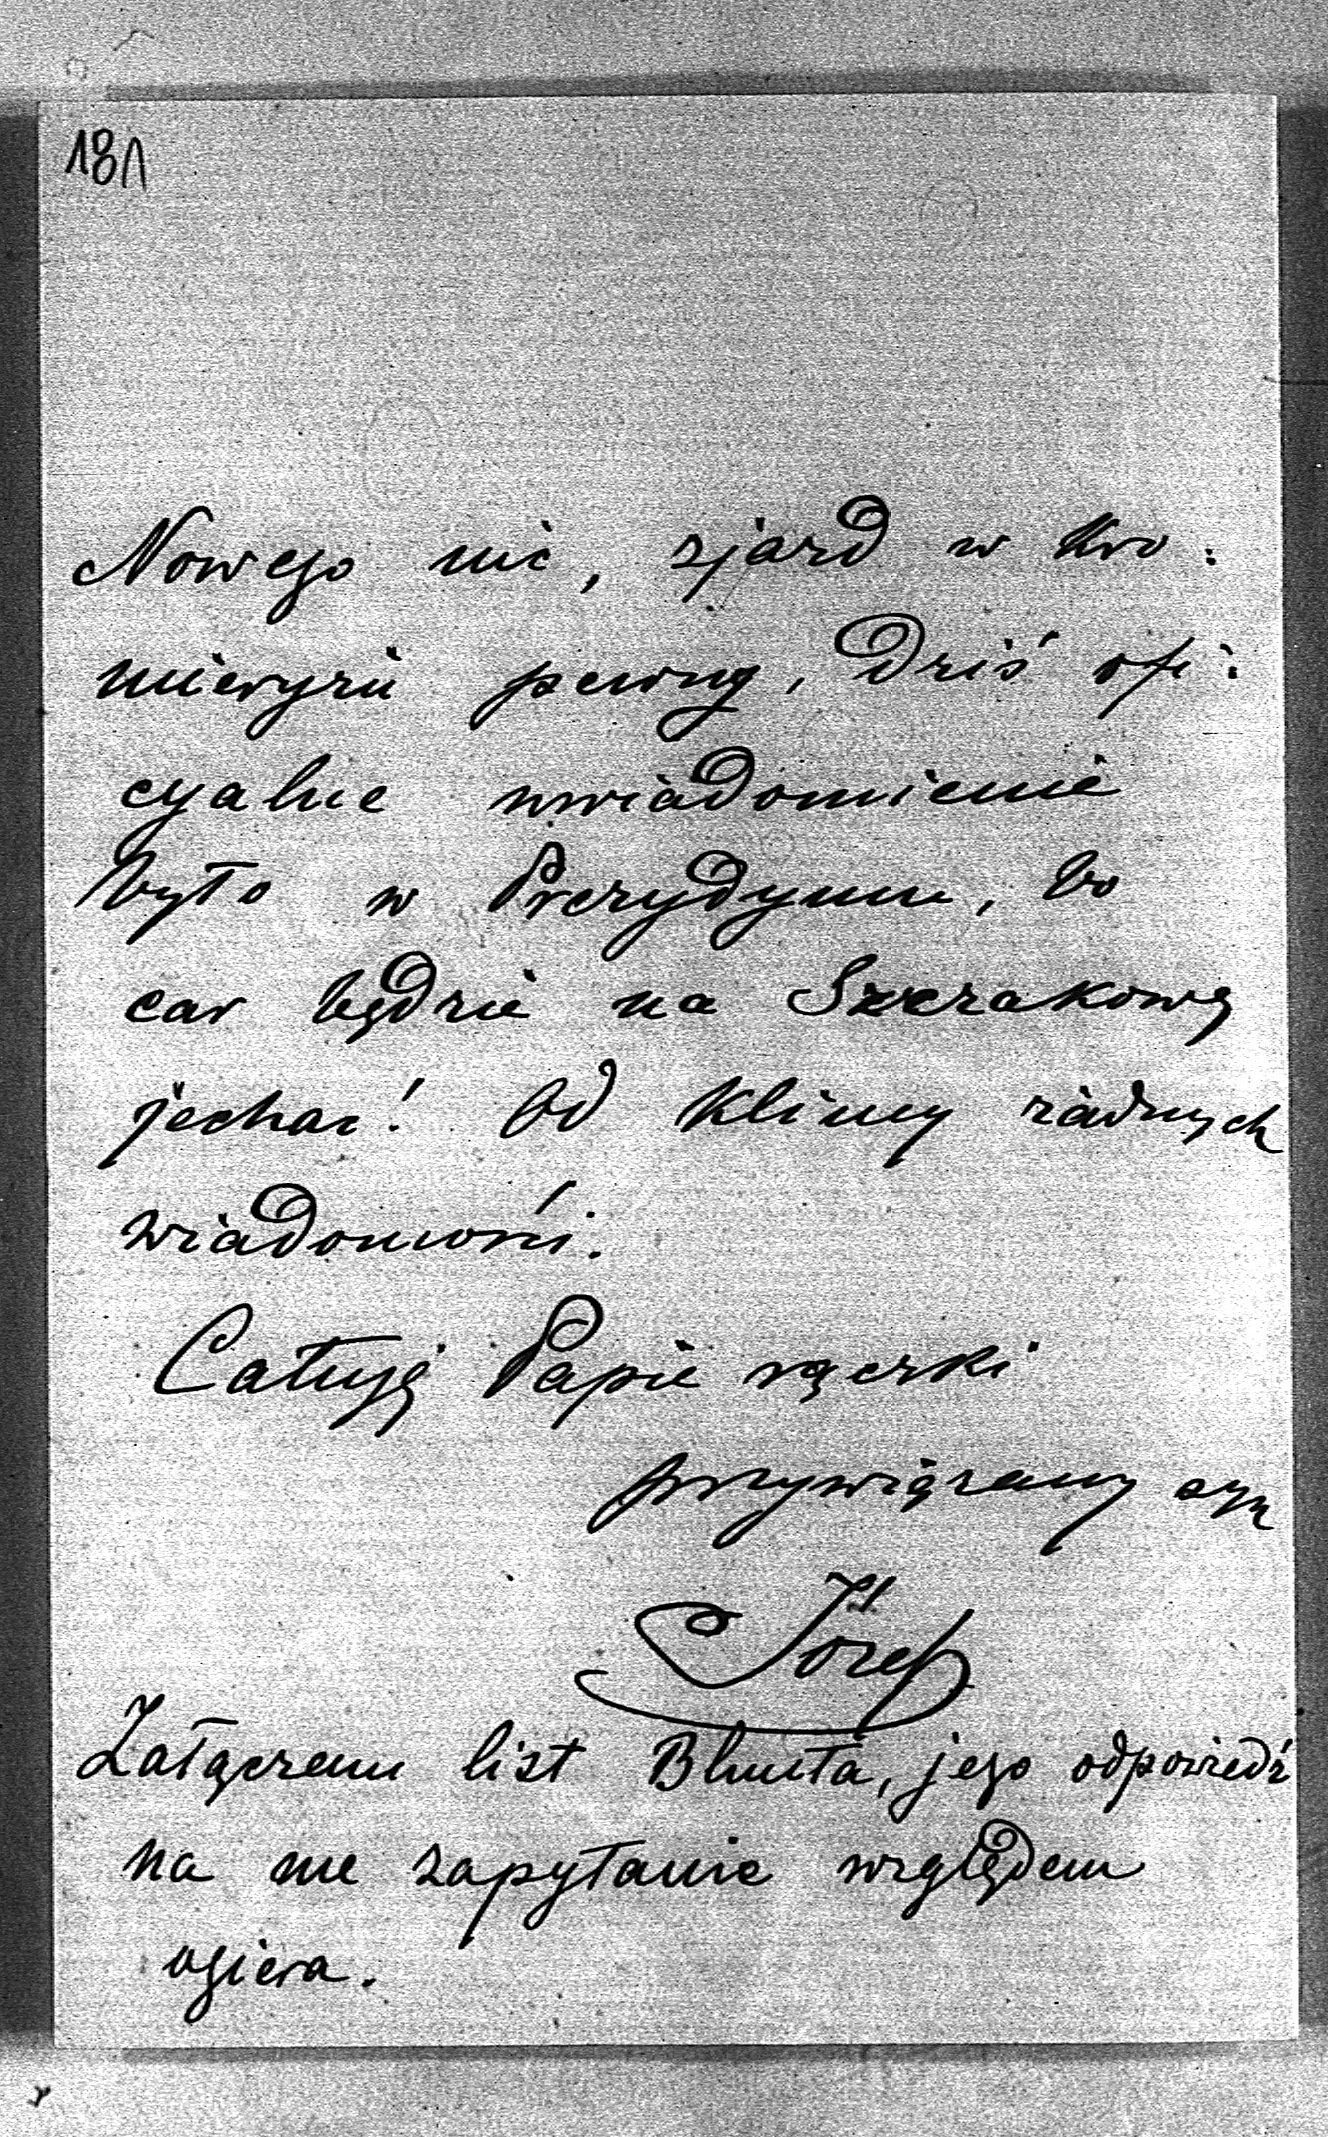 181
Nowego nic, zjazd w Kro:
mieryżu pewny, dziś ofi:
cyalne uwiadomienie
było w Prezydyum, bo
car będzie na Szczakowę
jechać! Od Klimy żadnych
wiadomości.
Całuję Papie rączki
przywiązany syn
Józef
Załączam list Blunta, jego odpowiedź
na me zapytanie względem
ogiera.